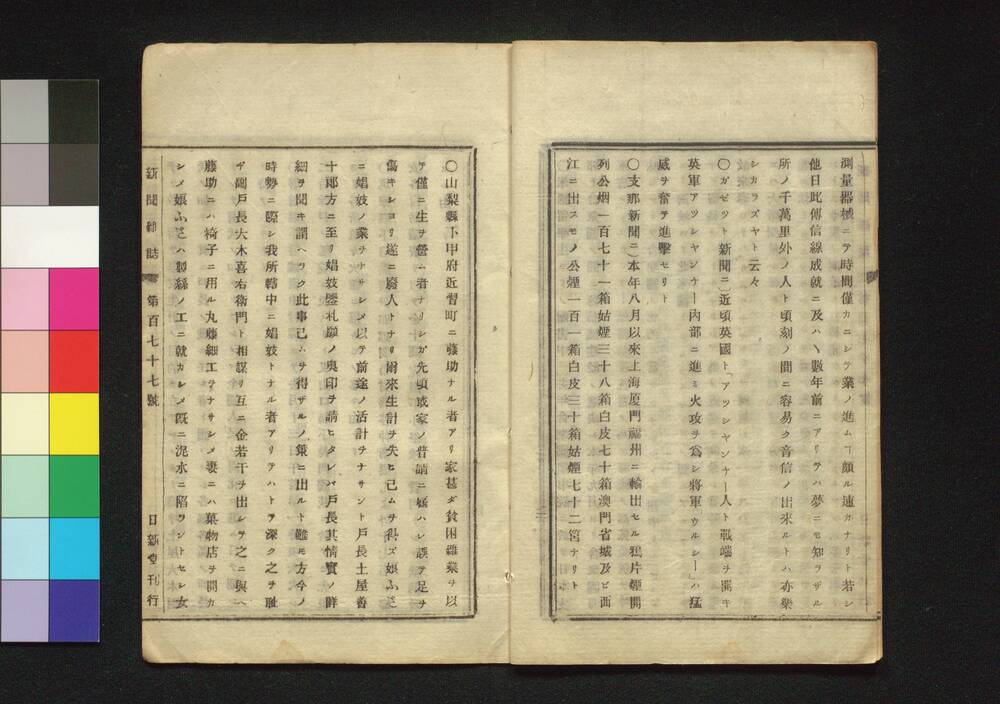 測量器械ニテ時間僅カニシテ業ノ進ムヿ頗ル速カナリト若シ
他日此傳信線成就ニ及ハヽ數年前ニアリテハ夢ニモ知ラザル
所ノ千萬里外ノ人ト頃刻ノ間ニ容易ク音信ノ出來ルトハ亦樂
シカラズヤト云々
〇ガゼツト新聞ニ〕近頃英國ト「アツシヤンチー人ト戰端ヲ開キ
英軍アツシヤンチー内部ニ進ミ火攻ヲ爲シ將軍ウルシー」ハ猛
威ヲ奮テ進撃セリト
〇支那新聞ニ〕本年八月以來上海厦門福州ニ輸出セル鴉片煙開
列公烟一百七十一箱姑煙三十八箱白皮七十箱澳門省城及ビ西
江ニ出スモノ公煙一百一箱白皮三十箱姑煙七十二筥ナリト
〇山梨縣下甲府近習町ニ藤助ナル者アリ家甚ダ貧困雜業ヲ以
テ僅ニ生ヲ營ム者ナリシガ先頃或家ノ普請ニ雇ハレ誤テ足ヲ
傷キシヨリ遂ニ廢人トナリ爾來生計ヲ失ヒ己ムヲ得ズ娘ふさ
ニ娼妓ノ業ヲナサシメ以テ前途ノ活計ヲナサント戸長土屋善
十郎方ニ至リ娼妓鑒札願ノ奥印ヲ請ヒタレバ戸長其情實ノ詳
細ヲ聞キ謂ヘラク此事己ムヲ得ザルノ策ニ出ルト雖モ方今ノ
時勢ニ際シ我所轄中ニ娼妓トナル者アリテハトヲ深ク之ヲ耻
ヂ副戸長大木喜右衛門ト相謀リ互ニ金若干ヲ出シテ之ニ與ヘ
藤助ニハ椅子ニ用ル丸藤細工ヲナサシメ妻ニハ菓物店ヲ開カ
シメ娘ふさハ製絲ノ工ニ就カシメ既ニ泥水ニ陷ラントセシ女
新聞雜誌 第百七十七號 日新堂刊行